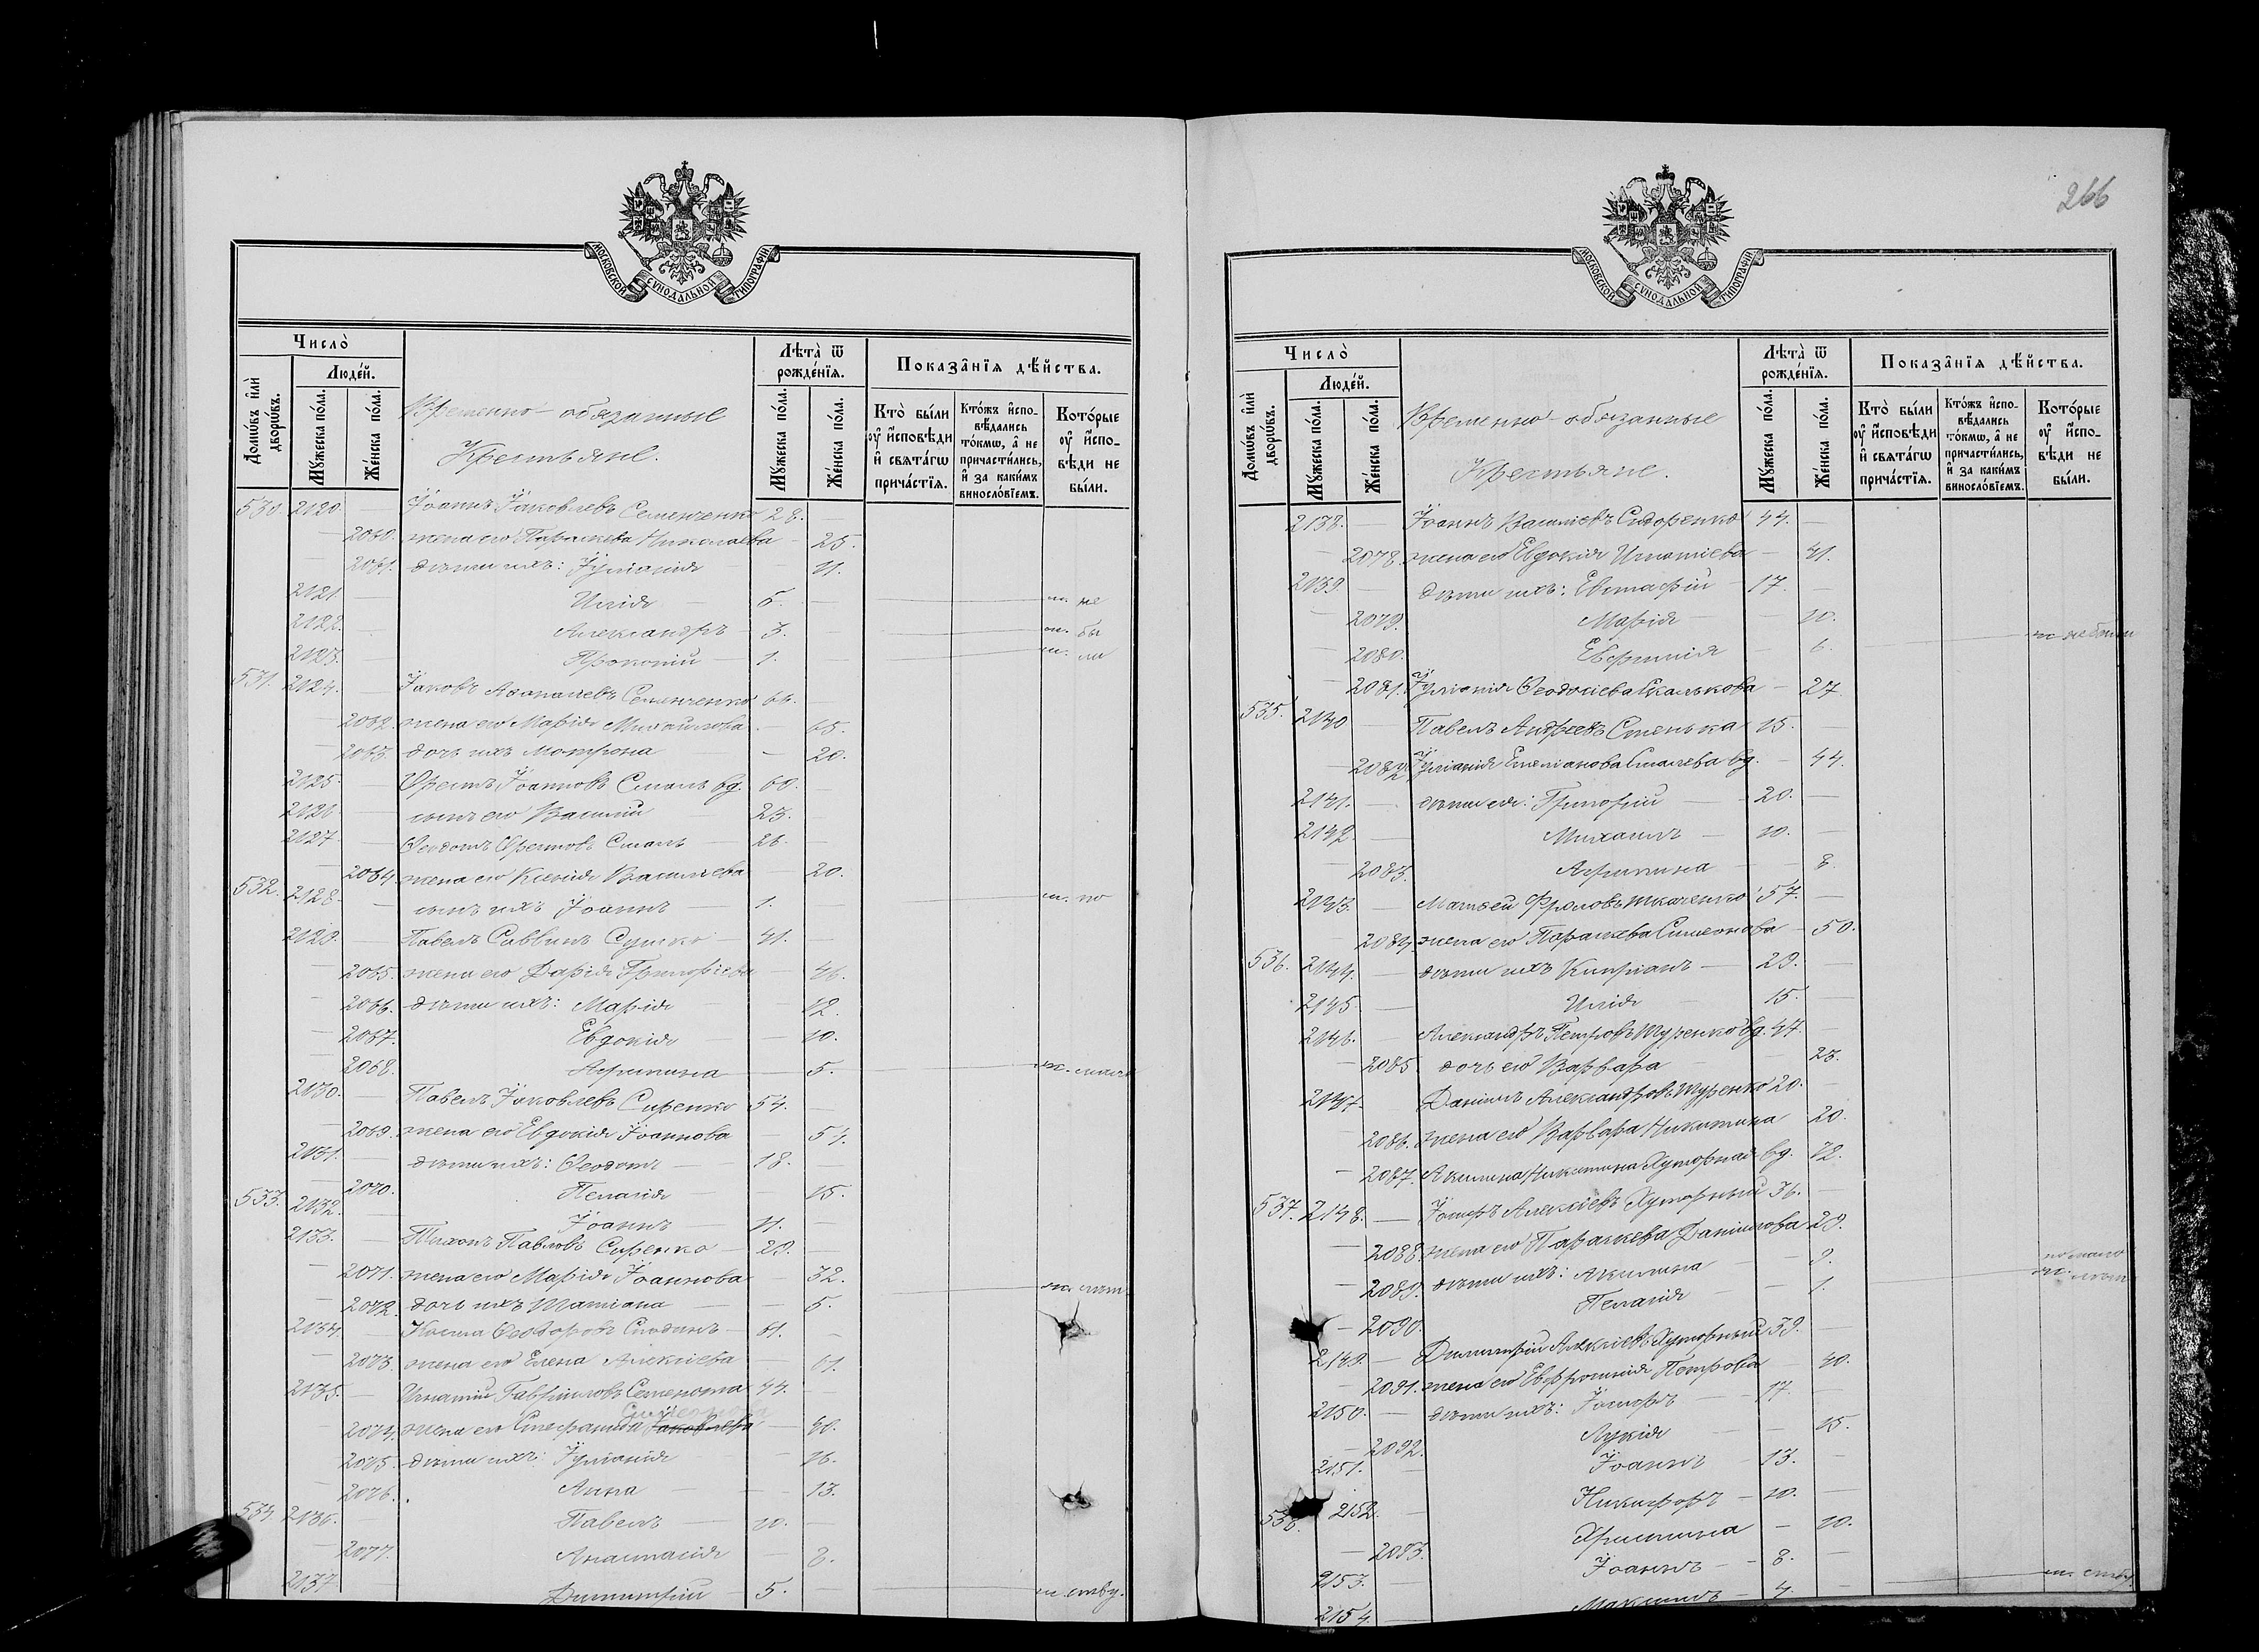 266
МОСКОВСКОЙ СѴНОДАЛЬНОЙ ТИПОГРАФІИ
Число̀
Домѡ́въ и҆лѝ дворѡ́въ.
Люде́й.
Мꙋ́жеска по́ла.
Же́нска по́ла.
Временно-обязанные
Крестьяне.
Лѣта̀ ѿ рожде́нїѧ.
Мꙋ́жеска по́ла.
Же́нска по́ла.
Показа̑нїѧ дѣ́йства.
Кто̀ бы́ли ᲂу҆ и҆́сповѣди и҆ свѧта́гѡ прича́стїѧ.
Кто́жъ и҆спо-
вѣ́дались
то́кмѡ, а҆ не
причасти́лись,
и҆ за каки́мъ
виносло́вїемъ.
Кото́рые ᲂу҆ и҆́спо-
вѣди не бы́ли.
530. 2120. — Іоаннъ Іаковлевъ Семенченко 28. —
— 2060. жена его Параскева Николаева — 25.
2061. дѣти ихъ: Іуліанія — 11.
2121. — Илія — 5. — не
2122. — Александръ — 3. — бы
2123. — Прокопій — 1. — ли
531. 2124. — Іаковъ Семенченко 66. —
— 2062. жена его Марія Михаилова — 65.
— 2063. дочь ихъ Мотрона — 20.
2125. — Орестъ Іоанновъ вд. 60. —
2126. — сынъ его Василій 23. —
2127. — Ѳеодотъ Орестовъ — 26. —
— 2064. жена его Ксенія Василіева — 20.
532. 2128. — сынъ ихъ Іоаннъ — 1. — по
2129. — Павелъ Саввинъ Сушко — 41. —
— 2065. жена его Дарія Григоріева — 46.
— 2066. дѣти ихъ: Марія — 12.
— 2067. Евдокія — 10.
— 2068. Агрипина — 5.
2130. — Павелъ Іаковлевъ Сиренко 54. —
— 2069. жена его Евдокія Іоаннова — 54.
2131. — дѣти ихъ: Ѳеодотъ — 18. —
— 2070. Пелагія — 15.
533. 2132. — Іоаннъ — 11. —
2133. — Тихонъ Павловъ Сиренко — 29. —
— 2071. жена его Марія Іоаннова — 32.
— 2072. дочь ихъ Татіана — 5.
2134. — Косма Ѳеодоровъ — 61. —
— 2073. жена его Елена Алексіева — 61.
2135. — Игнатій Гавріиловъ 44. —
Симеонова
— 2074. жена его Стефанида Іаковлева — 40.
— 2075. дѣти ихъ: Іуліанія — 16.
— 2076. Анна — 13.
534. 2136. — Павелъ — 10. —
— 2077. Анастасія — 8.
2137 — Димитрій — 5. —
МОСКОВСКОЙ СѴНОДАЛЬНОЙ ТИПОГРАФІИ
Число̀
Домѡ́въ и҆лѝ дворѡ́въ.
Люде́й.
Мꙋ́жеска по́ла.
Же́нска по́ла.
Временно-обязанные
Крестьяне.
Лѣта̀ ѿ рожде́нїѧ.
Мꙋ́жеска по́ла.
Же́нска по́ла.
Показа̑нїѧ дѣ́йства.
Кто̀ бы́ли ᲂу҆ и҆́сповѣди и҆ свѧта́гѡ прича́стїѧ.
Кто́жъ и҆спо-
вѣ́дались
то́кмѡ, а҆ не
причасти́лись,
и҆ за каки́мъ
виносло́вїемъ.
Кото́рые ᲂу҆ и҆́спо-
вѣди не бы́ли.
2138. — Іоаннъ Василіевъ Сидоренко 44. —
— 2078. жена его Евдокія Игнатіева — 41.
2139. — дѣти ихъ: Евстафій — 17. —
— 2079. Марія — 10.
— 2080. — 6. не были
— 2081. Іуліанія Ѳеодосіева Скалькова — 27
535. 2140 — Павелъ Андреевъ Стенька 15. —
— 2082. Іуліанія Емеліанова вд. — 44.
2141. — дѣти ея: Григорій — 20. —
2142 — Михаилъ — 10. —
— 2083. Агрипина — 8.
2143. — Матѳей Фроловъ Ткаченко 57. —
— 2084. жена его Параскева Симеонова — 50.
536. 2144. — дѣти ихъ Кипріанъ — 29. —
2145. — Илія — 15. —
2146. — Александръ Петровъ Шуренко вд. 47. —
— 2085. дочь его Варвара — 23.
2147. — Даніилъ Александровъ Шуренко 20. —
— 2086. жена его Варвара Никитина 20.
— 2087. Акилина Никитина Хуторная вд. 72.
537. 2148. — Іосифъ Алексіевъ Хуторный 36. —
— 2088. жена его Параскева Даніилова 29.
— 2089. дѣти ихъ: Акилина — 9.
— 2090. Пелагія — 1.
2149. — Димитрій Алексіевъ Хуторный 39. —
— 2091. жена его Евфросинія Петрова — 40.
2150. — дѣти ихъ: Іосифъ — 17. —
— 2092. Лукія — 15.
2151. — Іоаннъ — 13. —
538. 2152. — Никифоръ — 10. —
— 2093. Христина — 10.
2153. — Іоаннъ — 8. —
2154. — Максимъ — 4. —